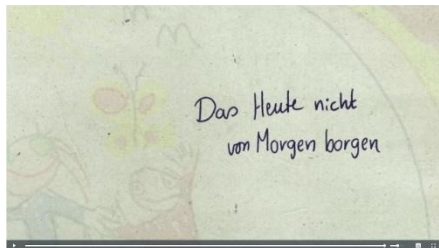 Das Heute nicht
von Morgen borgen